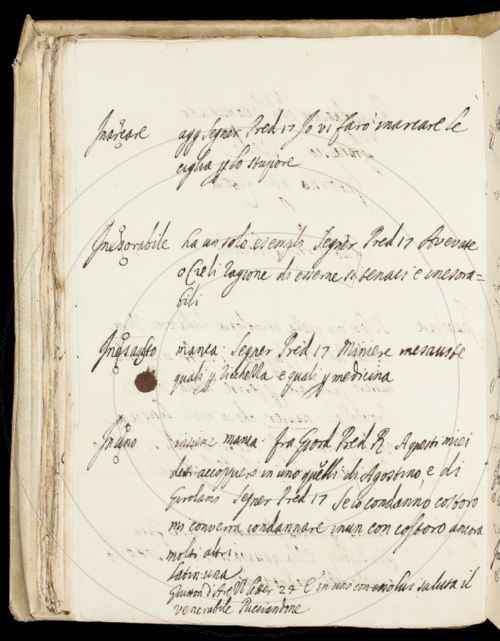 Inarcare agg Segner Pred 17 Io vi farò inarcare le
ciglia p lo stupore
Inesorabile ha un solo esempl. Segner Pred 17 Avevate
o Cieli ragione di esserne sì tenaci e inesora=
bili
Inesausto manca. Segner Pred 17 Miniere inesauste
quali p ricchezza e quali p medicina
In uno insieme manca. fra Giord Pred R. A questi miei
detti accoppierò in uno quelli di Agostino, e di
Girolamo Segner Pred 17 Se io condanno costoro
mi converrà condannare in un con costoro ancora
molti altri
latin. una
Guitton d'Arezzo letter 24 E in uno con esso lui saluta il
venerabile